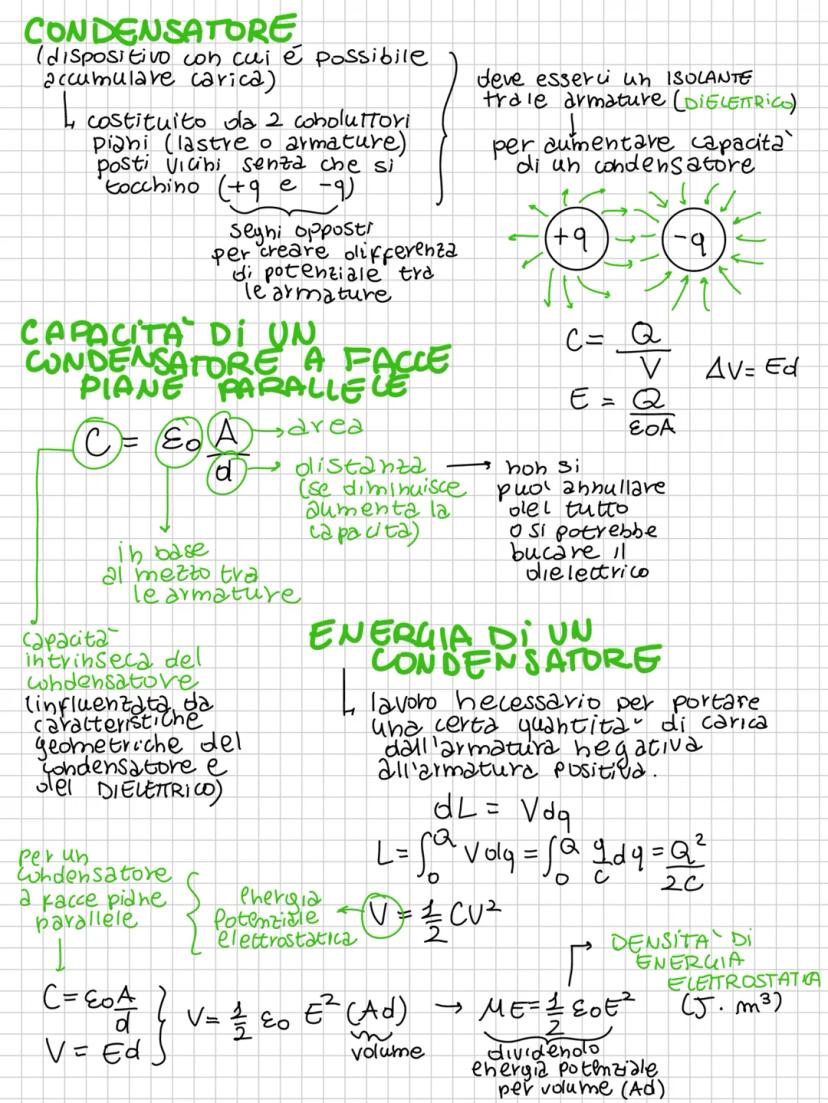 CONDENSATORE
(dispositivo con cui è possibile
accumulare carica)
↳ costituito da 2 conduttori
piani (lastre o armature)
posti vicini senza che si
tocchino (+q e -q)
segni opposti
per creare differenza
di potenziale tra
le armature
deve esserci un ISOLANTE
tra le armature (DIELETTRICO)
↓
per aumentare capacità
di un condensatore
+q
-q
CAPACITÀ DI UN
CONDENSATORE A FACCE
PIANE PARALLELE
C = Q/V
ΔV = Ed
E = Q/ε0A
C = ε0 A/d
→ area
→ distanza
(se diminuisce
aumenta la
capacità)
→ non si
può annullare
del tutto
o si potrebbe
bucare il
dielettrico
in base
al mezzo tra
le armature
capacità
intrinseca del
condensatore
(influenzata da
caratteristiche
geometriche del
condensatore e
del DIELETTRICO)
ENERGIA DI UN
CONDENSATORE
↳ lavoro necessario per portare
una certa quantità di carica
dall'armatura negativa
all'armatura positiva.
dL = Vdq
L = ∫₀^Q Vdq = ∫₀^Q q/c dq = Q²/2C
V = 1/2 CV²
energia
potenziale
elettrostatica
per un
condensatore
a facce piane
parallele
↓
C = ε0A/d
V = Ed
V = 1/2 ε0 E² (Ad)
volume
→ μE = 1/2 ε0E²
DENSITÀ DI
ENERGIA
ELETTROSTATICA
(J · m³)
dividendo
energia potenziale
per volume (Ad)